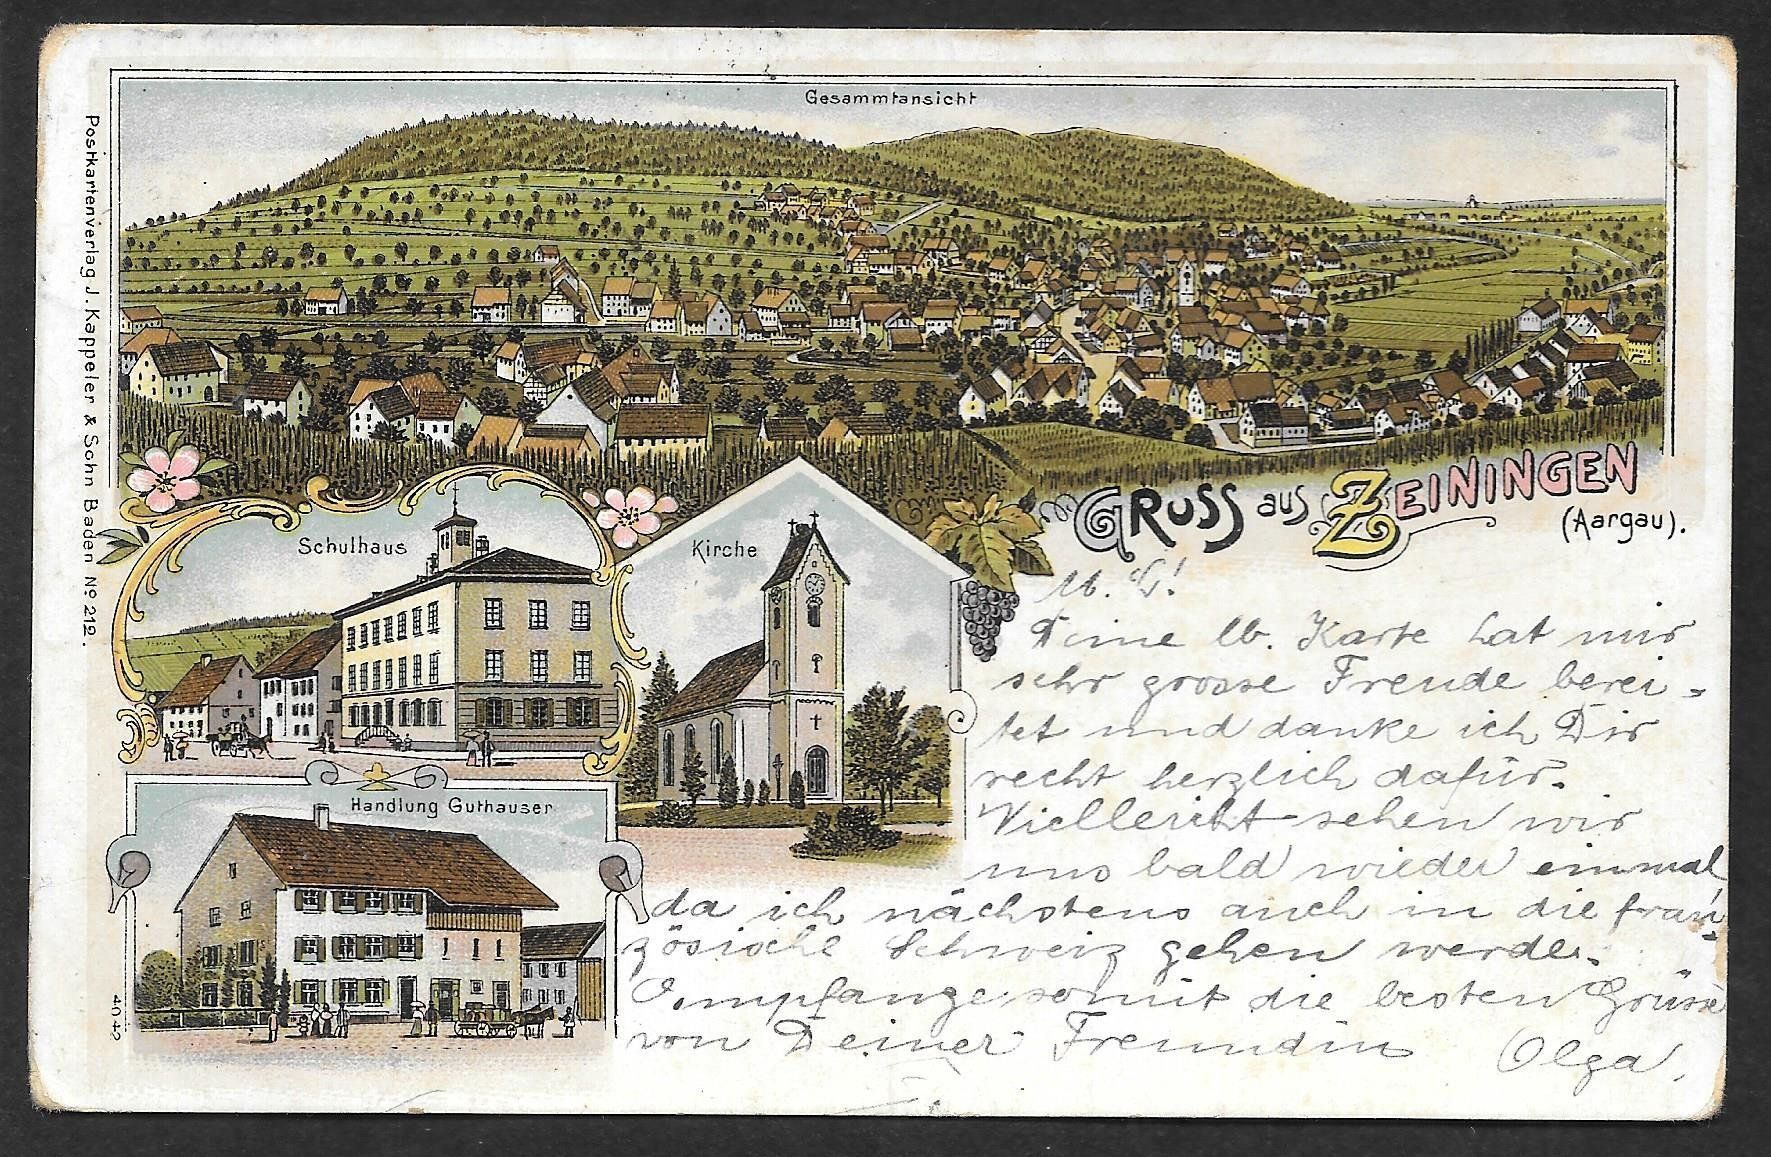 Gesammtansicht
Postkartenverlag J. Kappeler & Sohn Baden Nº 212.
GRUSS aus ZEININGEN
(Aargau).
Schulhaus
Kirche
Handlung Guthauser
4042
Deine lb. Karte hat mir
sehr grosse Freude berei-
tet und danke ich Dir
recht herzlich dafür.
Vielleicht sehen wir
uns bald wieder einmal,
da ich nächstens auch in die fran-
zösische Schweiz gehen werde.
Empfange somit die besten Grüsse
von Deiner Freundin Olga.